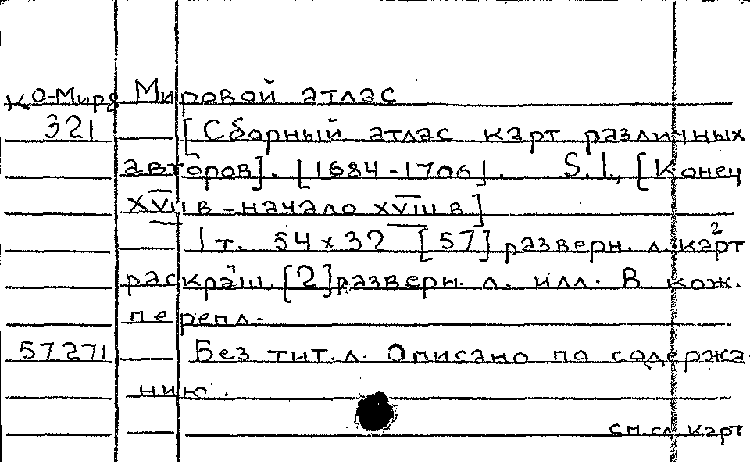 Ко-Мира Мировой атлас
321 [Сборный атлас карт различных
авторов]. [1684-1706]. S.l., [Конец
XVII в - начало XVIII в]
1 т. 54 x 32 [57] разверн. л. карт
раскраш. [2] разверн. л. илл. В кож.
перепл.
57271 Без тит. л. Описано по содержа-
нию.
см. сл. карт